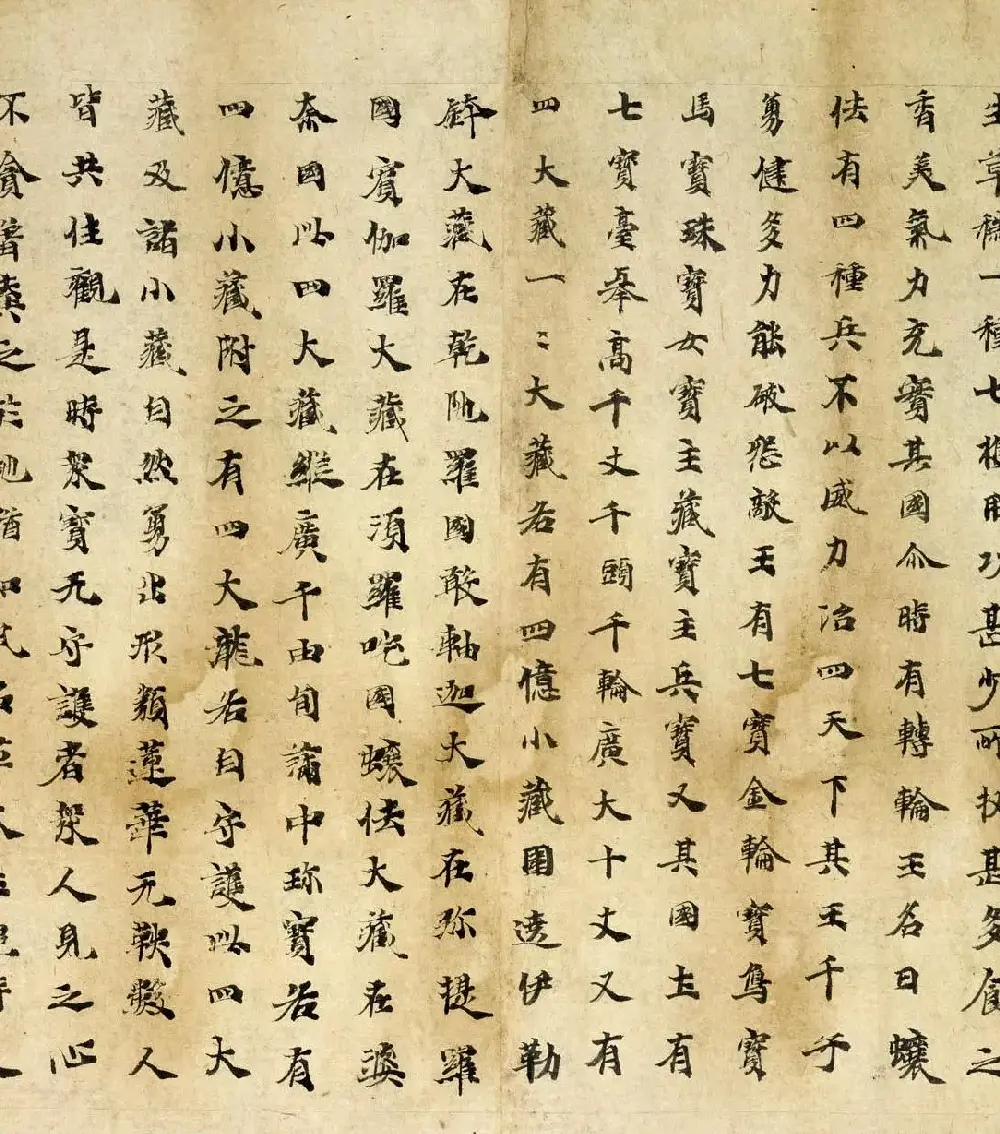 生草穢一種七穫用功甚少所收甚多食之
香美氣力充實其國尒時有轉輪王名曰蠰
佉有四種兵不以威力治四天下其王千子
勇健多力能破怨敵王有七寶金輪寶鳥寶
馬寶珠寶女寶主藏寶主兵寶又其國土有
七寶臺舉高千丈千頭千輪廣大十丈又有
四大藏一〻大藏各有四億小藏圍遶伊勒
鉢大藏在乾陁羅國敢軸迦大藏在弥提羅
國賓伽羅大藏在須羅吃國蠰佉大藏在婆
奈國此四大藏縱廣千由旬滿中珎寶各有
四億小藏附之有四大龍各自守護此四大
藏及諸小藏自然勇出形類蓮華无鞅數人
皆共住觀是時眾寶无守護者眾人見之心
不貪著棄之於地猶如瓦石草木